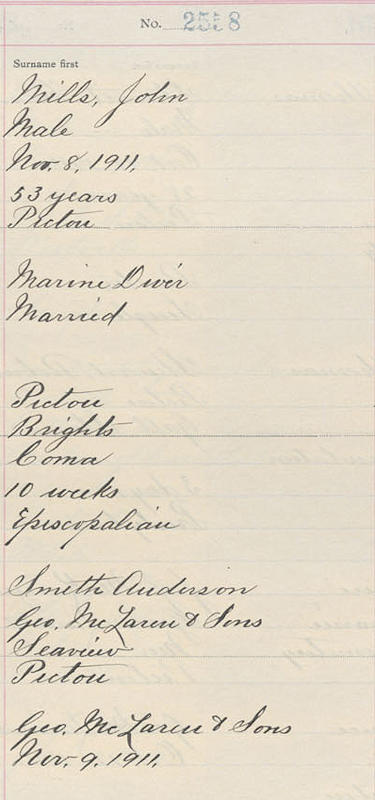 No. 2558
Surname first
Mills, John
Male
Nov. 8, 1911.
53 years
Pictou
Marine Diver
Married
Pictou
Brights
Coma
10 weeks
Episcopalian
Smith Anderson
Geo. McLaren & Sons
Seaview
Pictou
Geo. McLaren & Sons
Nov. 9. 1911.